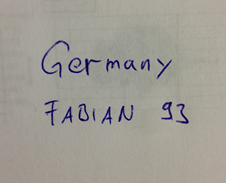 Germany
FABIAN 93